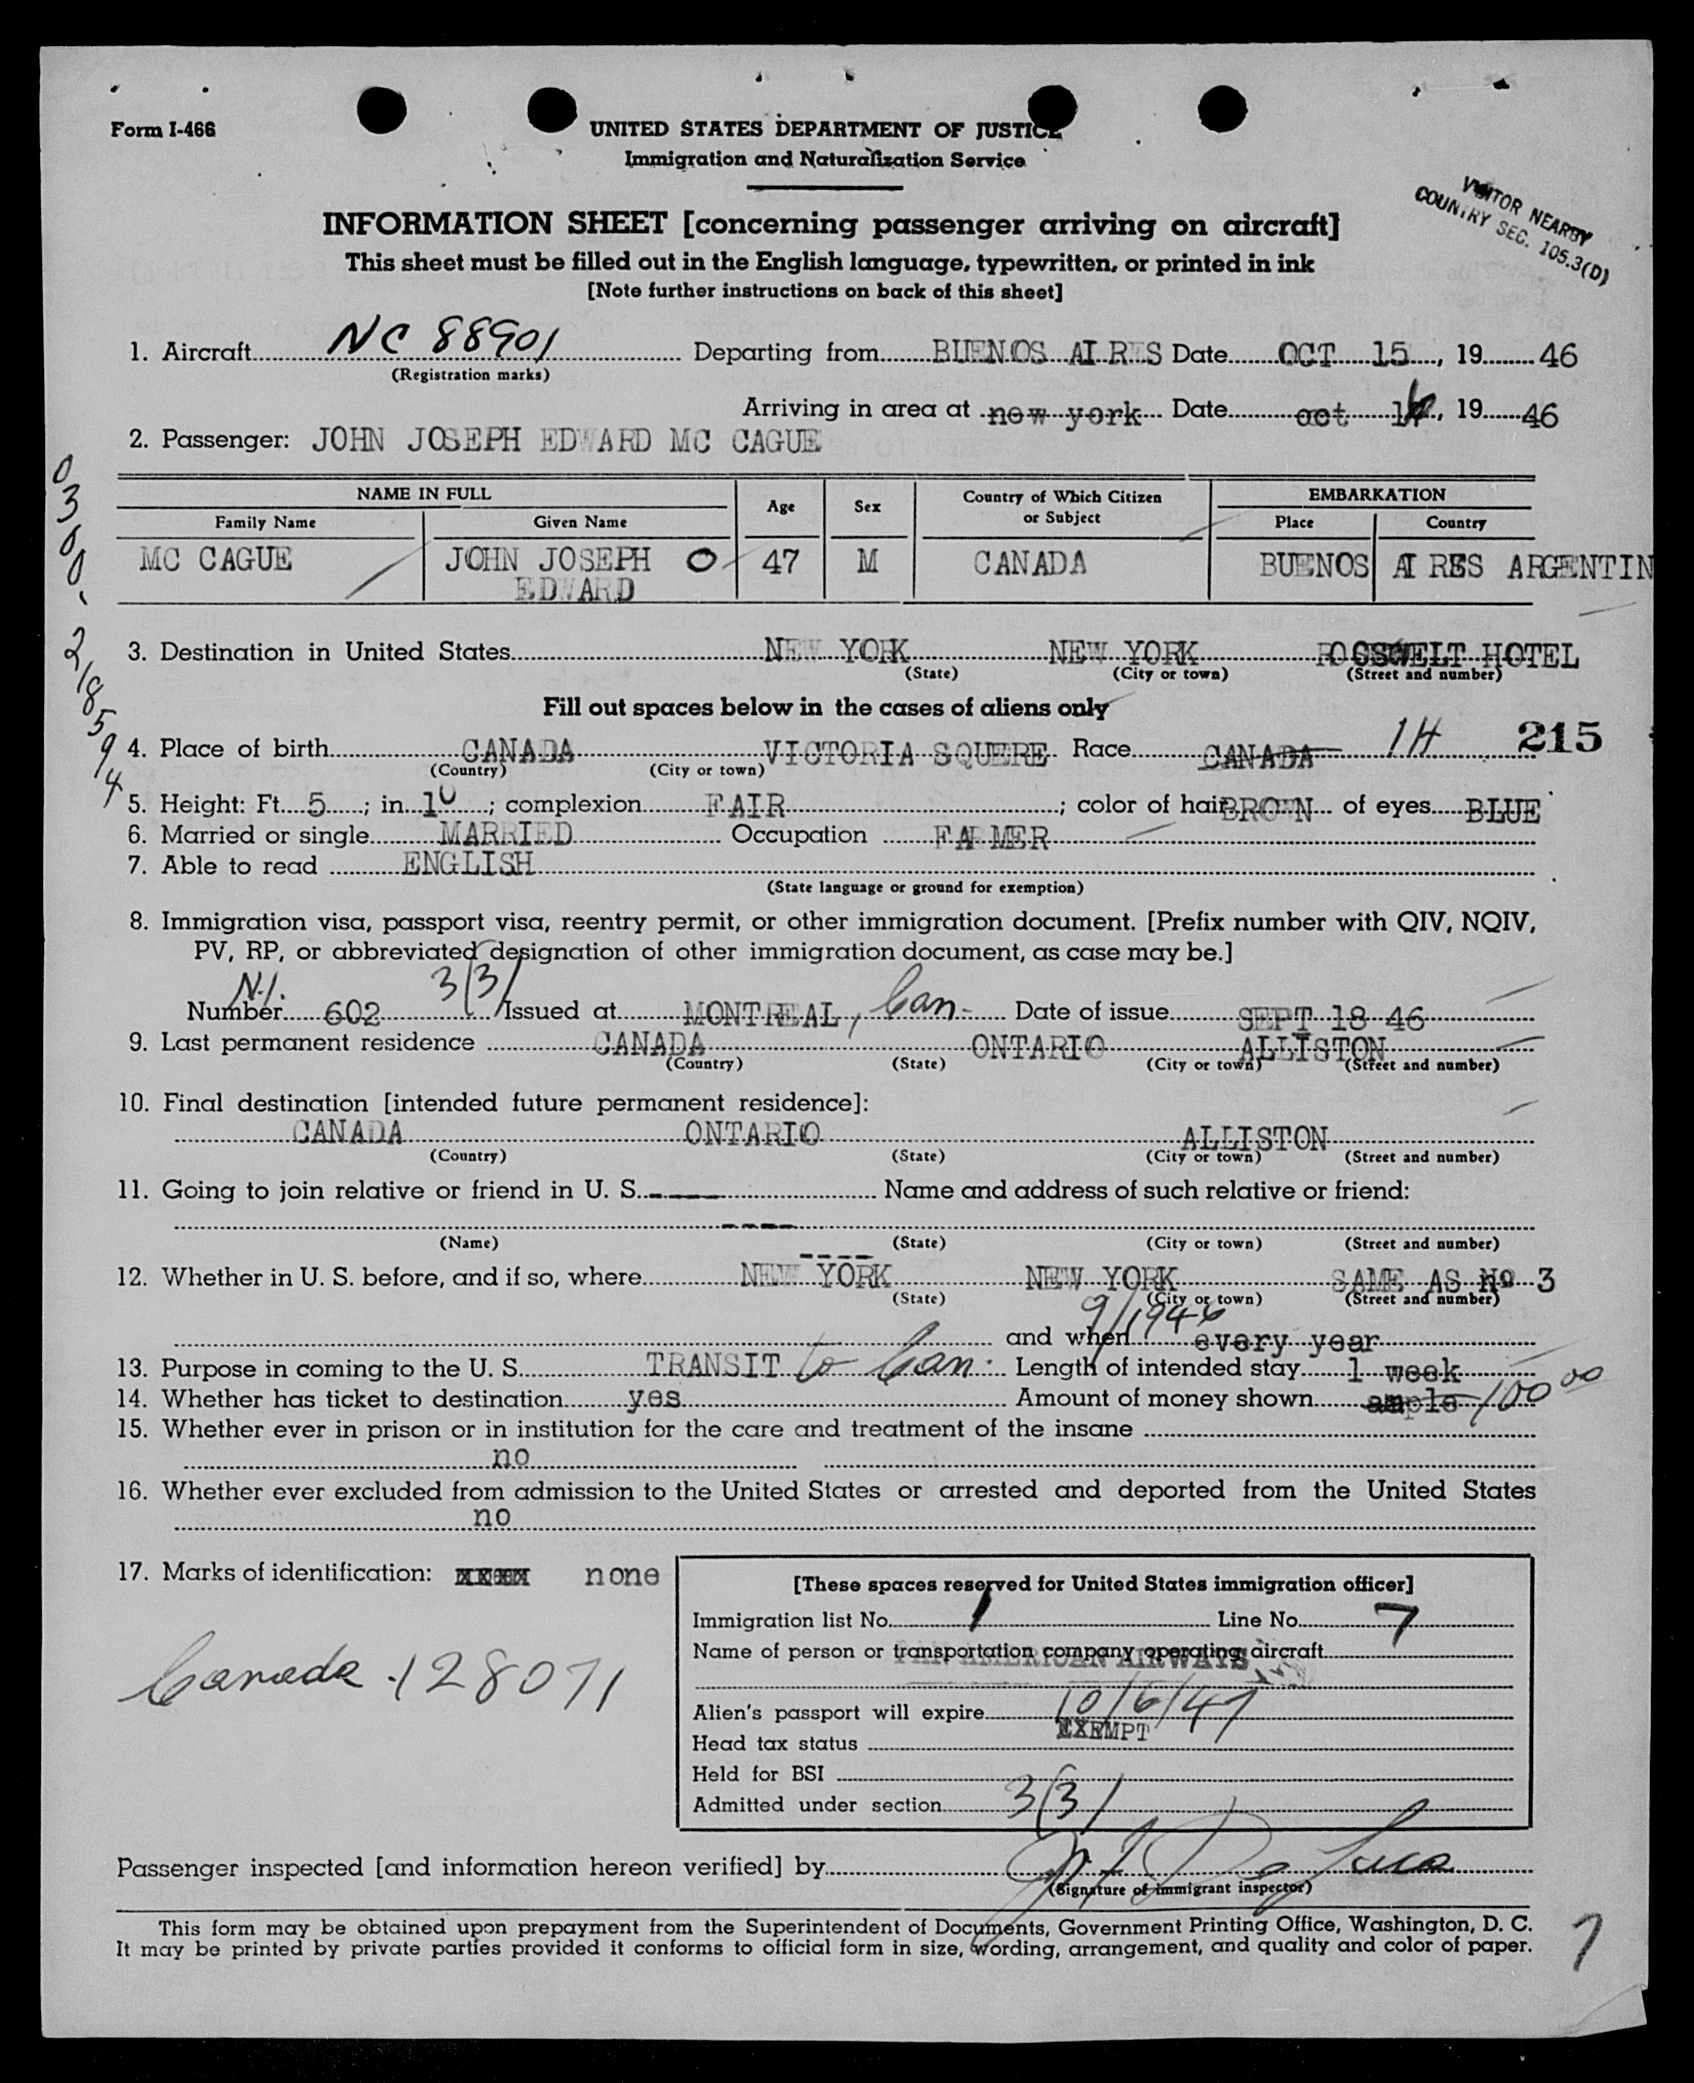 Form I-466
UNITED STATES DEPARTMENT OF JUSTICE
Immigration and Naturalization Service
VISITOR NEARBY
COUNTRY SEC. 105.3(D)
INFORMATION SHEET [concerning passenger arriving on aircraft]
This sheet must be filled out in the English language, typewritten, or printed in ink
[Note further instructions on back of this sheet]
1. Aircraft NC 88901 Departing from BUENOS AIRES Date OCT 15, 1946
(Registration marks)
Arriving in area at new york Date oct 16, 1946
2. Passenger: JOHN JOSEPH EDWARD MC CAGUE
0300-218594
NAME IN FULL Age Sex Country of Which Citizen or Subject EMBARKATION
Family Name Given Name Place Country
MC CAGUE JOHN JOSEPH O 47 M CANADA BUENOS AIRES ARGENTIN
EDWARD
3. Destination in United States NEW YORK NEW YORK ROOSWELT HOTEL
(State) (City or town) (Street and number)
Fill out spaces below in the cases of aliens only
4. Place of birth CANADA VICTORIA SQUERE Race CANADA 1H 215
(Country) (City or town)
5. Height: Ft. 5; in. 10; complexion FAIR; color of hair BROWN of eyes BLUE
6. Married or single MARRIED Occupation FARMER
7. Able to read ENGLISH
(State language or ground for exemption)
8. Immigration visa, passport visa, reentry permit, or other immigration document. [Prefix number with QIV, NQIV,
PV, RP, or abbreviated designation of other immigration document, as case may be.]
N.I. 3(3)
Number 602 Issued at MONTREAL, Can. Date of issue SEPT 18 46
9. Last permanent residence CANADA ONTARIO ALLISTON
(Country) (State) (City or town) (Street and number)
10. Final destination [intended future permanent residence]:
CANADA ONTARIO ALLISTON
(Country) (State) (City or town) (Street and number)
11. Going to join relative or friend in U. S. ---- Name and address of such relative or friend:
----
(Name) (State) (City or town) (Street and number)
----
12. Whether in U. S. before, and if so, where NEW YORK NEW YORK SAME AS No 3
(State) (City or town) (Street and number)
9/1946
and when every year
13. Purpose in coming to the U. S. TRANSIT to Can. Length of intended stay 1 week
14. Whether has ticket to destination yes Amount of money shown ample 100 00
15. Whether ever in prison or in institution for the care and treatment of the insane
no
16. Whether ever excluded from admission to the United States or arrested and deported from the United States
no
17. Marks of identification: none
Canada 128071
[These spaces reserved for United States immigration officer]
Immigration list No. 1 Line No. 7
Name of person or transportation company operating aircraft
PAN AMERICAN AIRWAYS
Alien's passport will expire 10/6/47
Head tax status EXEMPT
Held for BSI
Admitted under section 3(3)
Passenger inspected [and information hereon verified] by
(Signature of immigrant inspector)
This form may be obtained upon prepayment from the Superintendent of Documents, Government Printing Office, Washington, D. C.
It may be printed by private parties provided it conforms to official form in size, wording, arrangement, and quality and color of paper.
7